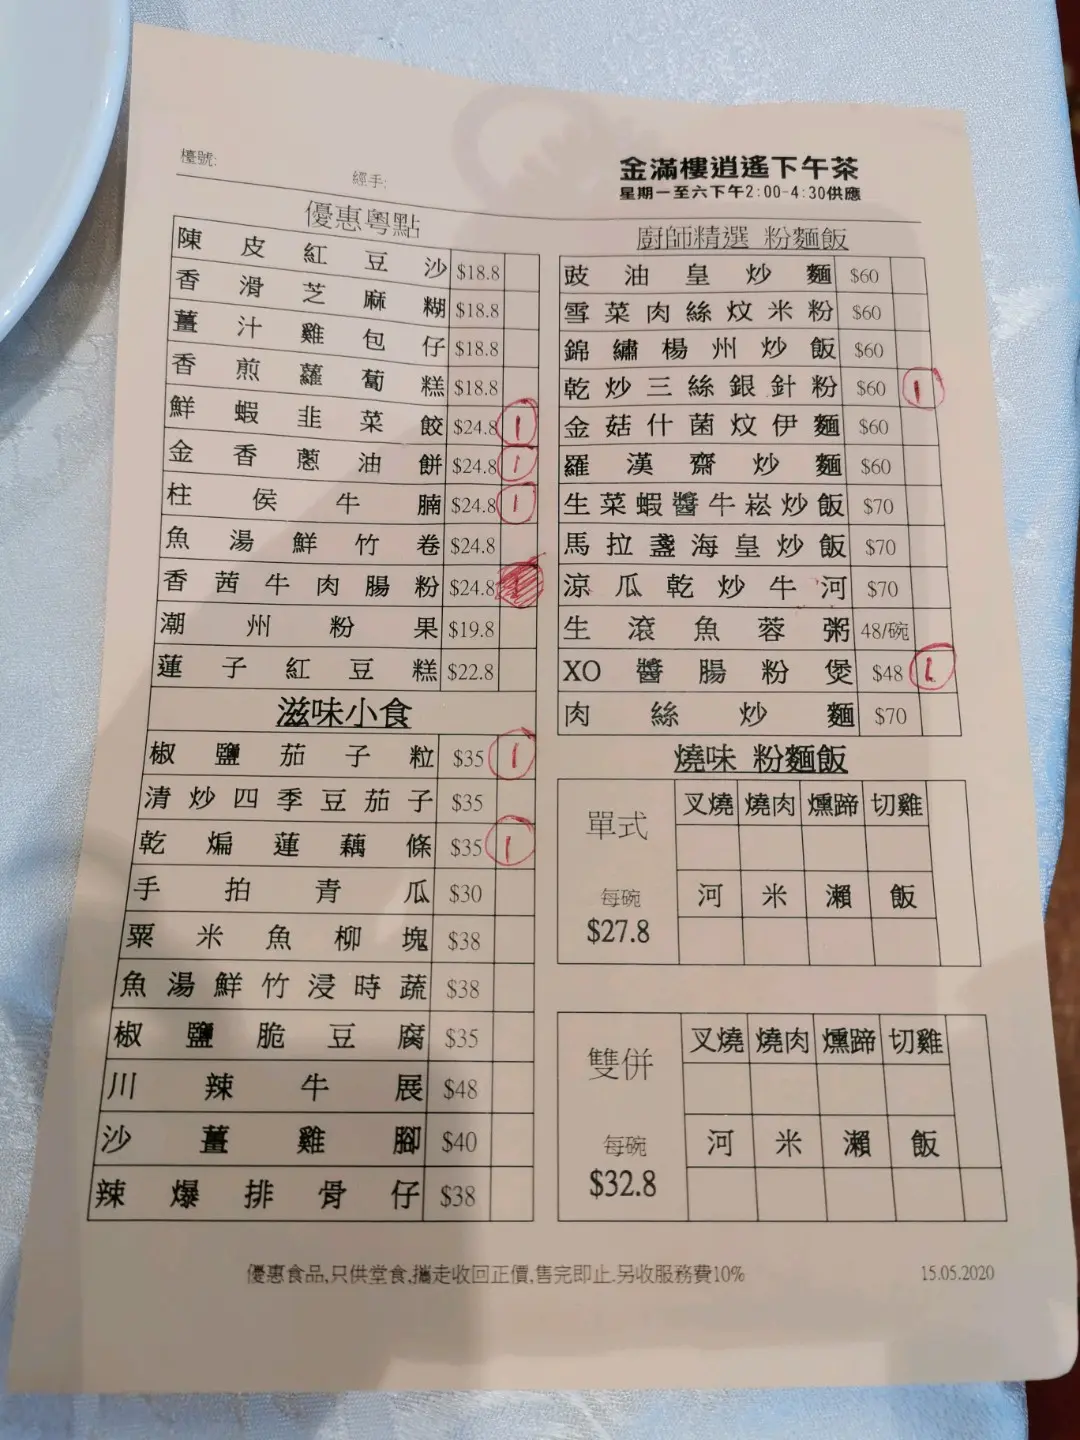 檯號:
經手:
金滿樓逍遙下午茶
星期一至六下午2:00-4:30供應
優惠粵點
陳皮紅豆沙 $18.8
香滑芝麻糊 $18.8
薑汁雞包仔 $18.8
香煎蘿蔔糕 $18.8
鮮蝦韭菜餃 $24.8 1
金香蔥油餅 $24.8 1
柱侯牛腩 $24.8 1
魚湯鮮竹卷 $24.8
香茜牛肉腸粉 $24.8
潮州粉果 $19.8
蓮子紅豆糕 $22.8
滋味小食
椒鹽茄子粒 $35 1
清炒四季豆茄子 $35
乾煸蓮藕條 $35 1
手拍青瓜 $30
粟米魚柳塊 $38
魚湯鮮竹浸時蔬 $38
椒鹽脆豆腐 $35
川辣牛展 $48
沙薑雞腳 $40
辣爆排骨仔 $38
廚師精選 粉麵飯
豉油皇炒麵 $60
雪菜肉絲炆米粉 $60
錦繡楊州炒飯 $60
乾炒三絲銀針粉 $60 1
金菇什菌炆伊麵 $60
羅漢齋炒麵 $60
生菜蝦醬牛崧炒飯 $70
馬拉盞海皇炒飯 $70
涼瓜乾炒牛河 $70
生滾魚蓉粥 48/碗
XO醬腸粉煲 $48 1
肉絲炒麵 $70
燒味 粉麵飯
單式
每碗
$27.8
叉燒 燒肉 燻蹄 切雞
河 米 瀨 飯
雙併
每碗
$32.8
叉燒 燒肉 燻蹄 切雞
河 米 瀨 飯
優惠食品,只供堂食,攜走收回正價,售完即止.另收服務費10%
15.05.2020